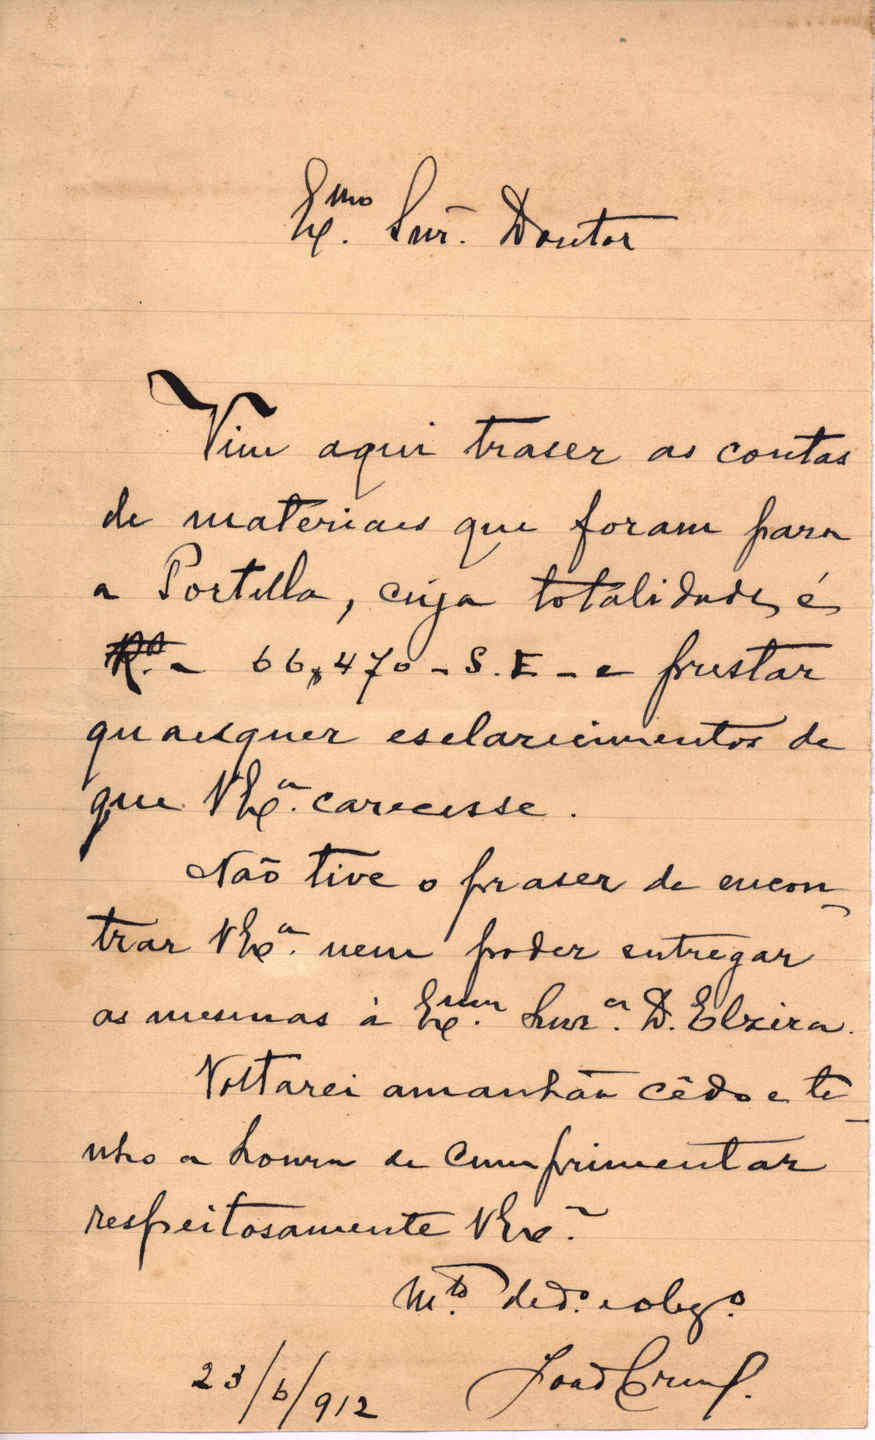 Exmo. Snr. Doutor
Vim aqui traser as contas
de materiaes que foram para
a Portella, cuja totalidade é
Rs. - 66,470 - S.E. - e prestar
quaesquer esclarecimentos de
que VExa. carecesse.
Não tive o praser de encon-
trar VExa. nem poder entregar
as mesmas á Exma. Snra. D. Elzira.
Voltarei amanhãa cêdo e te-
nho a honra de cumprimentar
respeitosamente VExa.
Mto. dedo. e obgo.
23/6/912
João